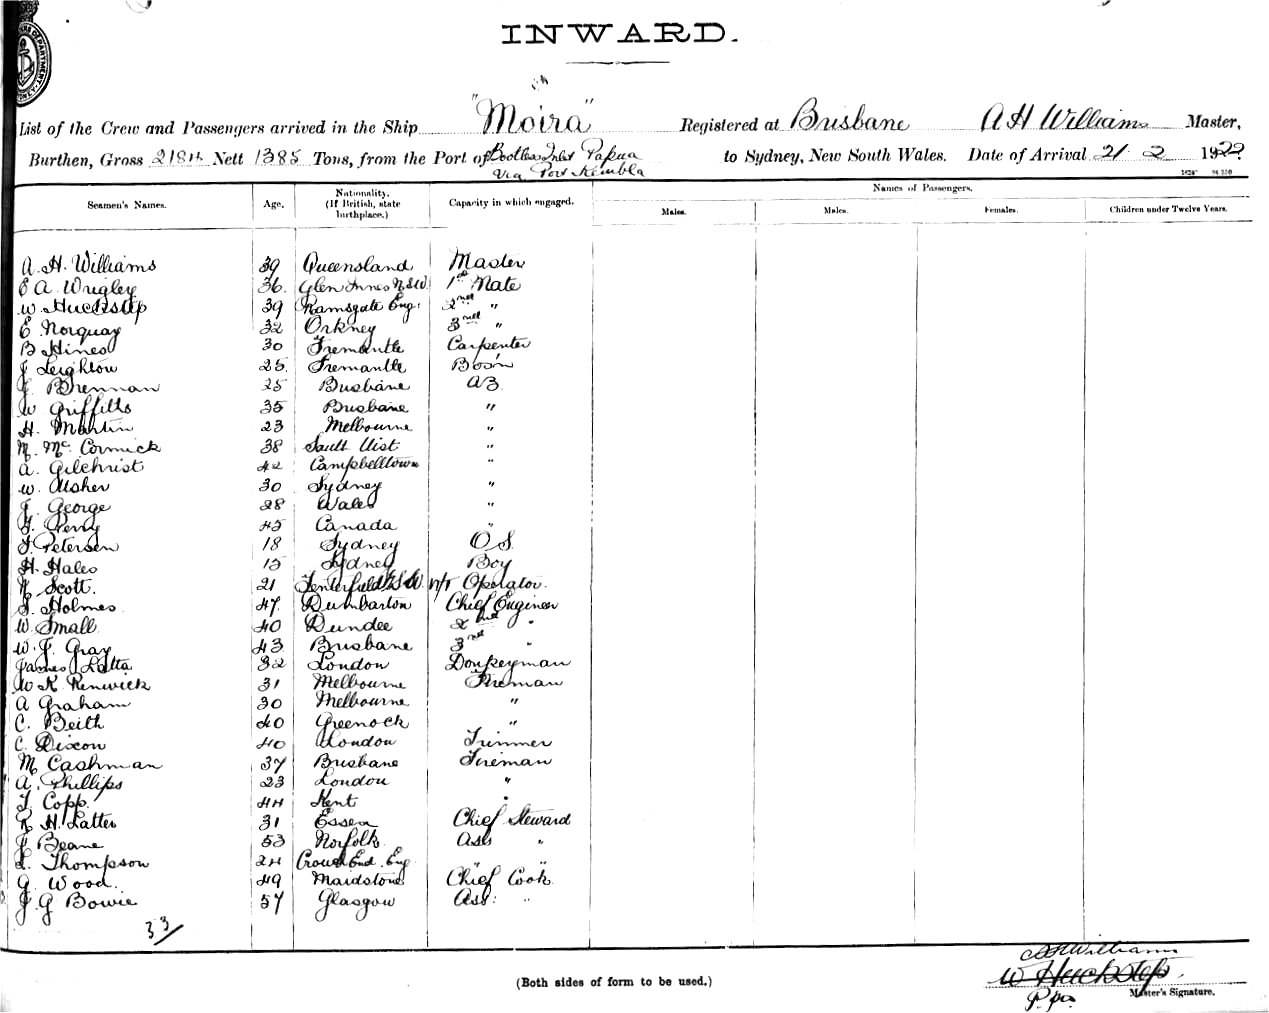 INWARD.
List of the Crew and Passengers arrived in the Ship "Moira" Registered at Brisbane A H Williams Master,
Burthen, Gross 2184 Nett 1385 Tons, from the Port of Bootless Inlet Papua to Sydney, New South Wales. Date of Arrival 21 2 1922
Via Port Kembla
Seamen's Names. Age. Nationality. (If British, state birthplace.) Capacity in which engaged. Names of Passengers.
Males. Males. Females. Children under Twelve Years.
A. H. Williams 39 Queensland Master
E A Wrigley 36. Glen Innes N.S.W. 1st Mate
W Huckstep 39 Ramsgate Eng. 2nd "
E Norquay 32 Orkney 3rd "
B Hines 30 Fremantle Carpenter
J Leighton 25. Fremantle Bos'n
J. Brennan 25 Brisbane AB.
W Griffitts 35 Brisbane "
H. Martin 23 Melbourne "
M. McCormick 38 Sault Uist "
A. Gilchrist 42 Campbelltown "
W. Usher 30 Sydney "
J. George 28 Wales "
J. Perry 45 Canada "
J. Petersen 18 Sydney O.S.
H. Hales 15 Sydney Boy
N Scott. 21 Tenterfield N.S.W. W/T Operator.
J. Holmes. 47. Dumbarton Chief Engineer
W. Small. 40 Dundee 2nd "
W. J. Gray 43 Brisbane 3rd "
James Latta 32 London Donkeyman
W K Renwick 31 Melbourne Fireman
A Graham 30 Melbourne "
C. Beith 40 Greenock "
C. Dixon 40 London Trimmer
M Cashman 37 Brisbane Fireman
A. Phillips 23 London "
T. Copp. 44 Kent "
R H. Latter 31 Essex Chief Steward
J Beane 53 Norfolk Ass "
L. Thompson 24 Crouch End. Eng " "
G. Wood. 49 Maidstone Chief Cook
J. G Bowie 57 Glasgow Ass: "
33/
A H Williams
W Huckstep.
(Both sides of form to be used.) P.pro. Master's Signature.